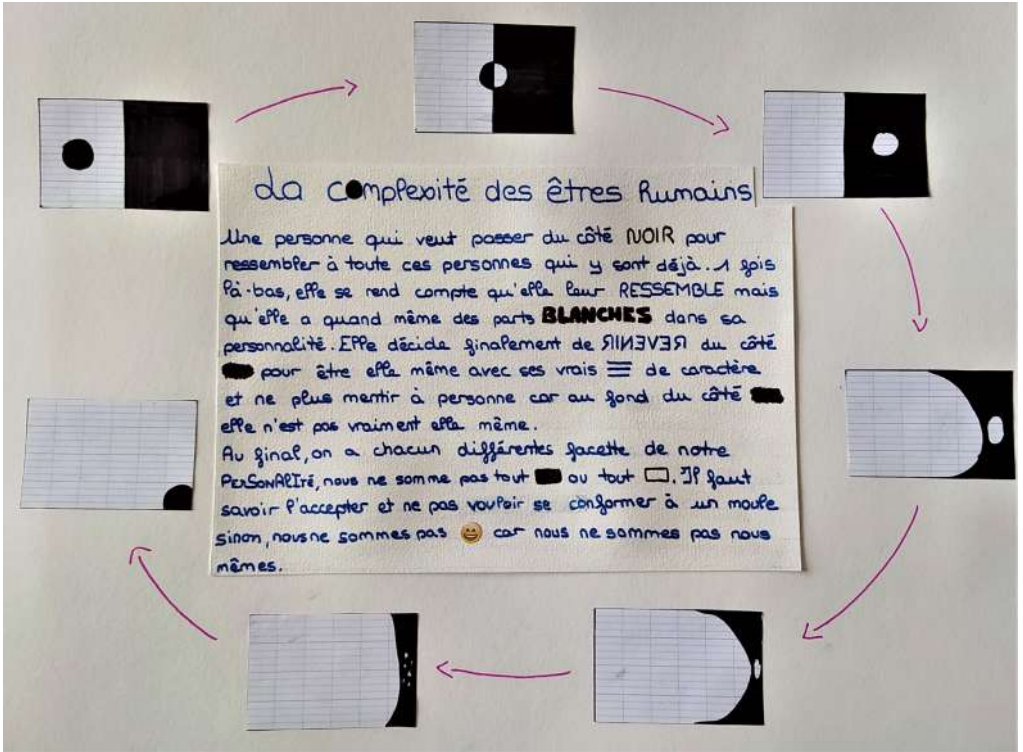 La complexité des êtres humains
Une personne qui veut passer du côté NOIR pour
ressembler à toute ces personnes qui y sont déjà. 1 fois
là-bas, elle se rend compte qu'elle leur RESSEMBLE mais
qu'elle a quand même des parts BLANCHES dans sa
personnalité. Elle décide finalement de REVENIR du côté
pour être elle même avec ses vrais de caractère
et ne plus mentir à personne car au fond du côté
elle n'est pas vraiment elle même.
Au final, on a chacun différentes facette de notre
PERSONALITé, nous ne somme pas tout ou tout . Il faut
savoir l'accepter et ne pas vouloir se conformer à un moule
sinon, nous ne sommes pas 😄 car nous ne sommes pas nous
mêmes.